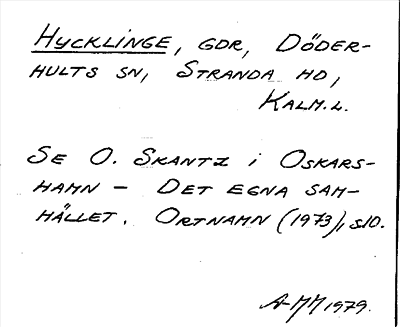 HYCKLINGE, GDR, DÖDER-
HULTS SN, STRANDA HD,
KALM.L.
SE O. SKANTZ i OSKARS-
HAMN - DET EGNA SAM-
HÄLLET. ORTNAMN (1973), s10.
A-MM 1979.